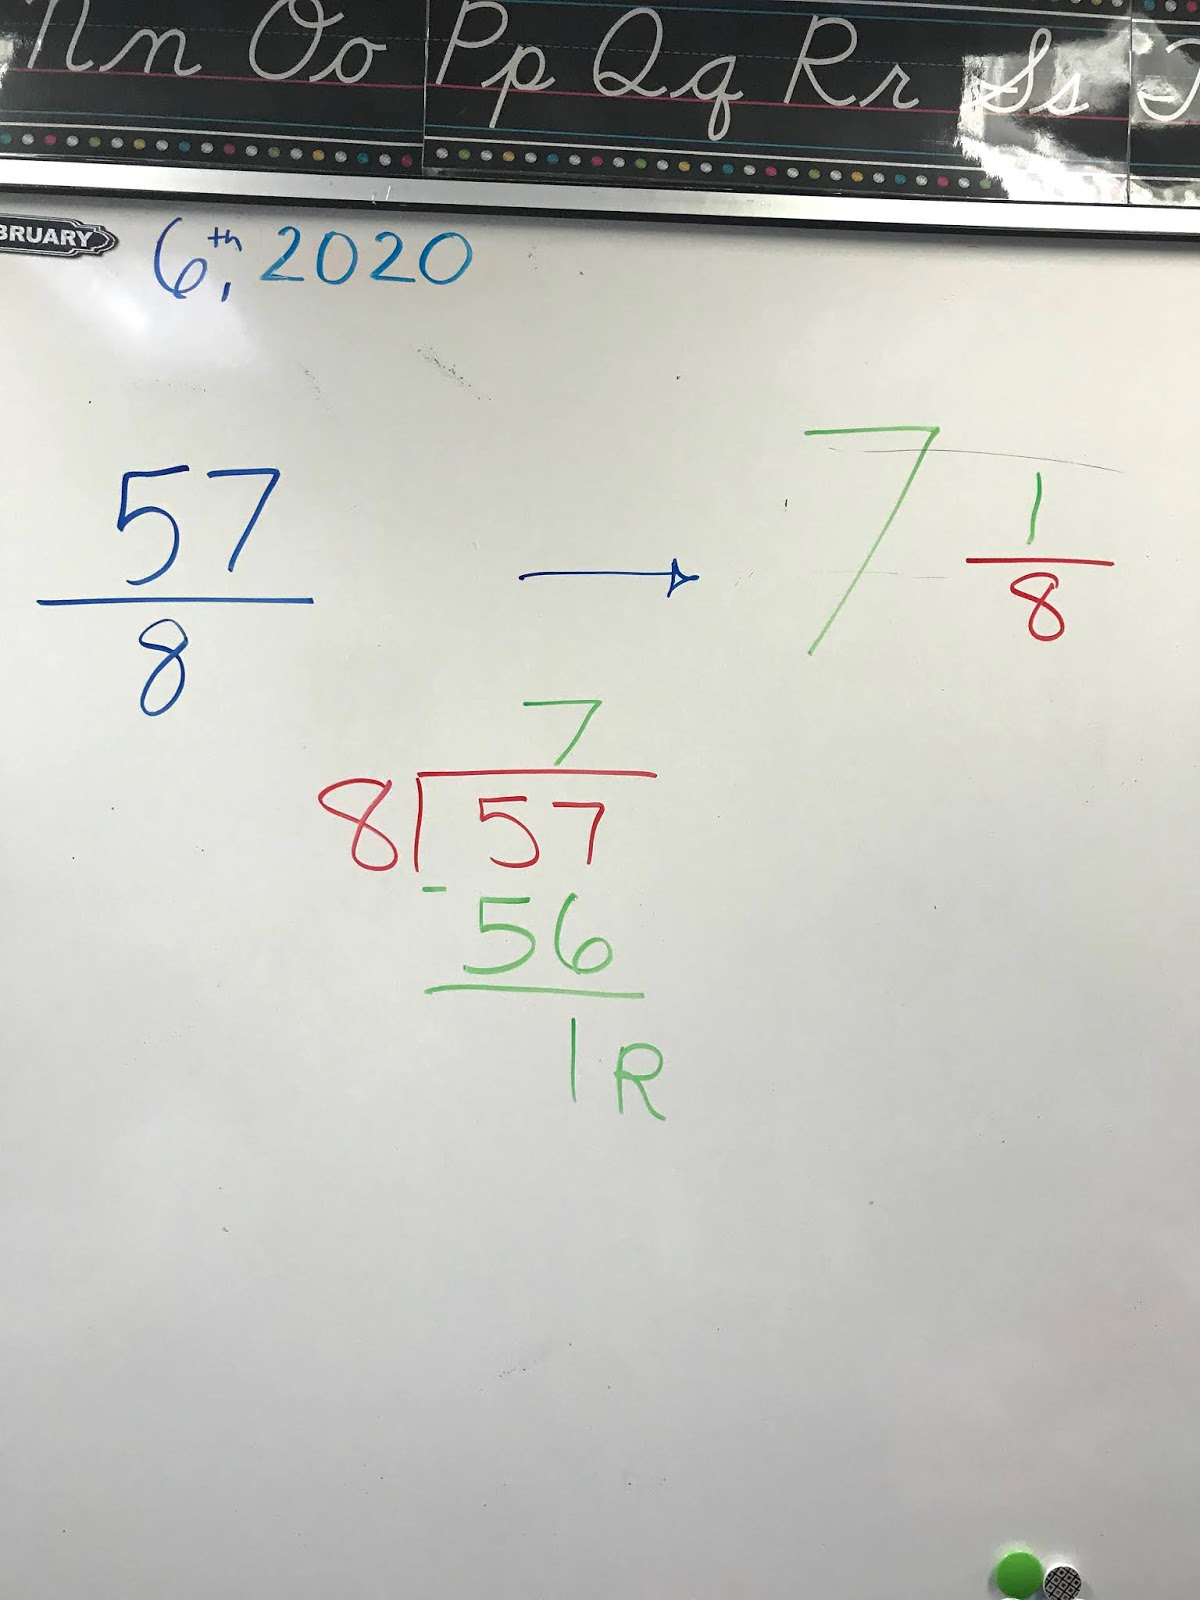 Nn Oo Pp Qq Rr Ss
BRUARY 6th, 2020
57
8
→
7 1
8
7
8 57
- 56
1 R